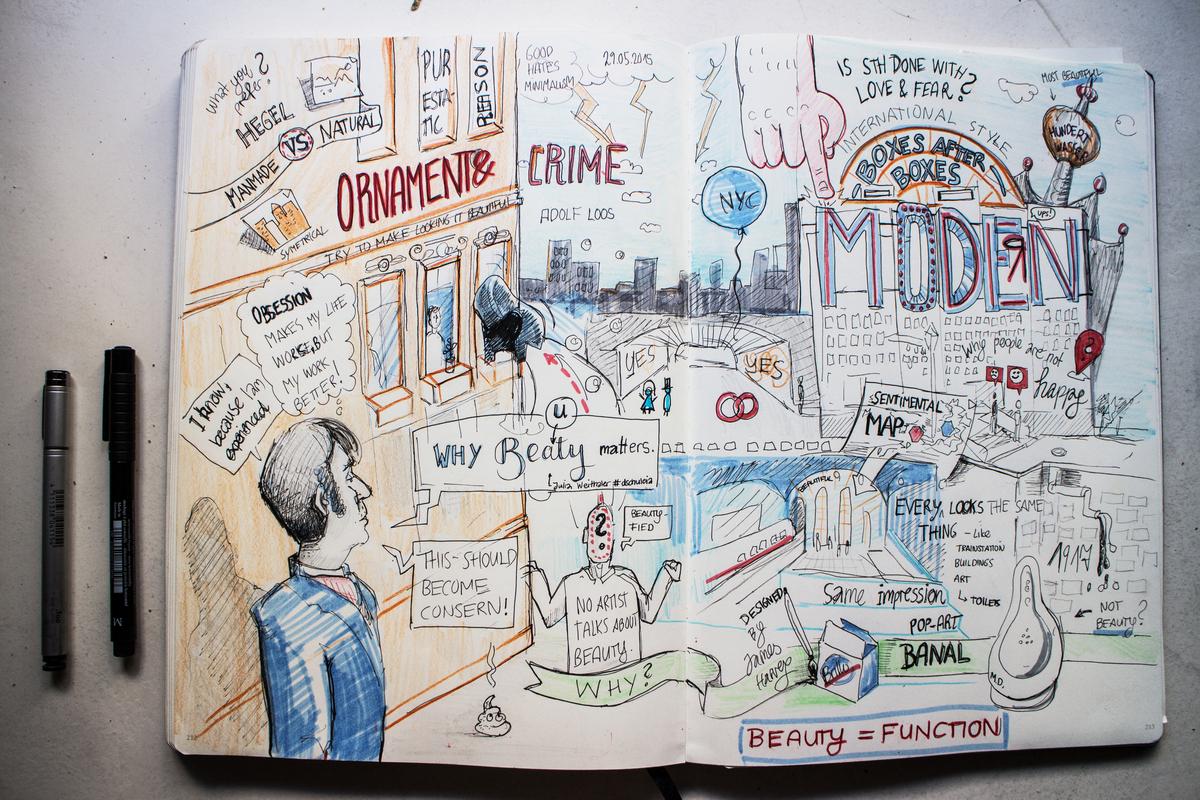 what you
prefer?
HEGEL
VS
NATURAL
MANMADE
SYMETRICAL
PUR
ESTA-
TIC
REASON
ORNAMENT&
CRIME
TRY TO MAKE LOOKING IT BEAUTIFUL
GOOD
HATES
MINIMALISM
29.05.2015
ADOLF LOOS
OBSESSION
MAKES MY LIFE
WORSE, BUT
MY WORK
BETTER!
I know,
because I am
experienced
U
WHY Beaty matters.
Julia Weithaler #dschulcia
THIS SHOULD
BECOME
CONSERN!
?
BEAUTY-
FIED
NO ARTIST
TALKS ABOUT
BEAUTY.
WHY?
212
IS STH DONE WITH
LOVE & FEAR?
MOST BEAUTIFUL
INTERNATIONAL STYLE
BOXES AFTER
BOXES
HUNDERT
WASSER
NYC
ups!
MODERN
YES
YES
why people are not
happy
?
SENTIMENTAL
MAP
BEAUTIFUL
EVERY, LOOKS THE SAME
THING - like
TRAINSTATION
BUILDINGS
ART
↳ TOILETS
1917
Same impression
POP-ART
BANAL
← NOT
BEAUTY?
DESIGNED
By
James
Harvey
Brillo
M.D.
BEAUTY = FUNCTION
213